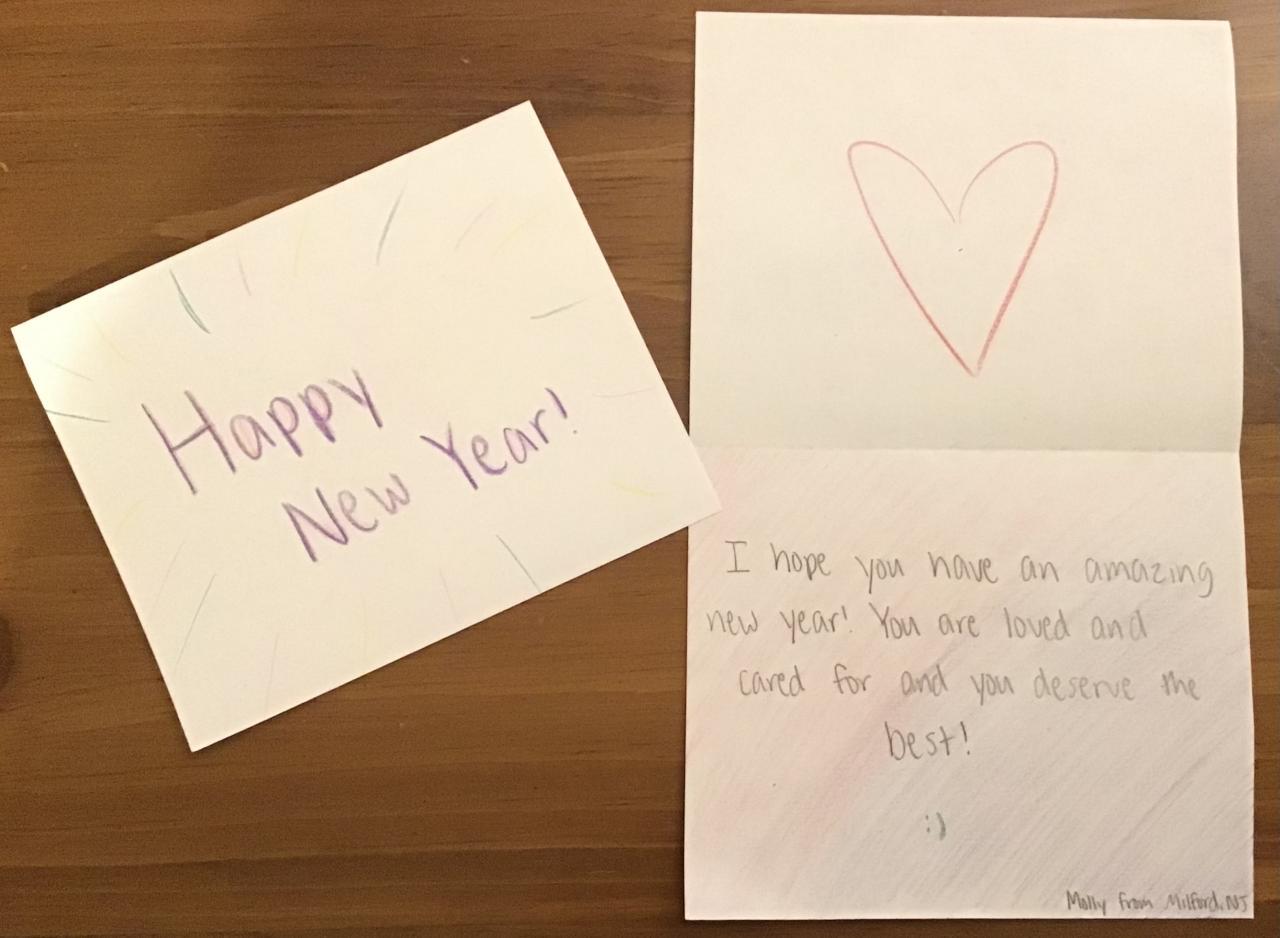 Happy
New Year!
I hope you have an amazing
new year! You are loved and
cared for and you deserve the
best!
:)
Molly from Milford, NJ